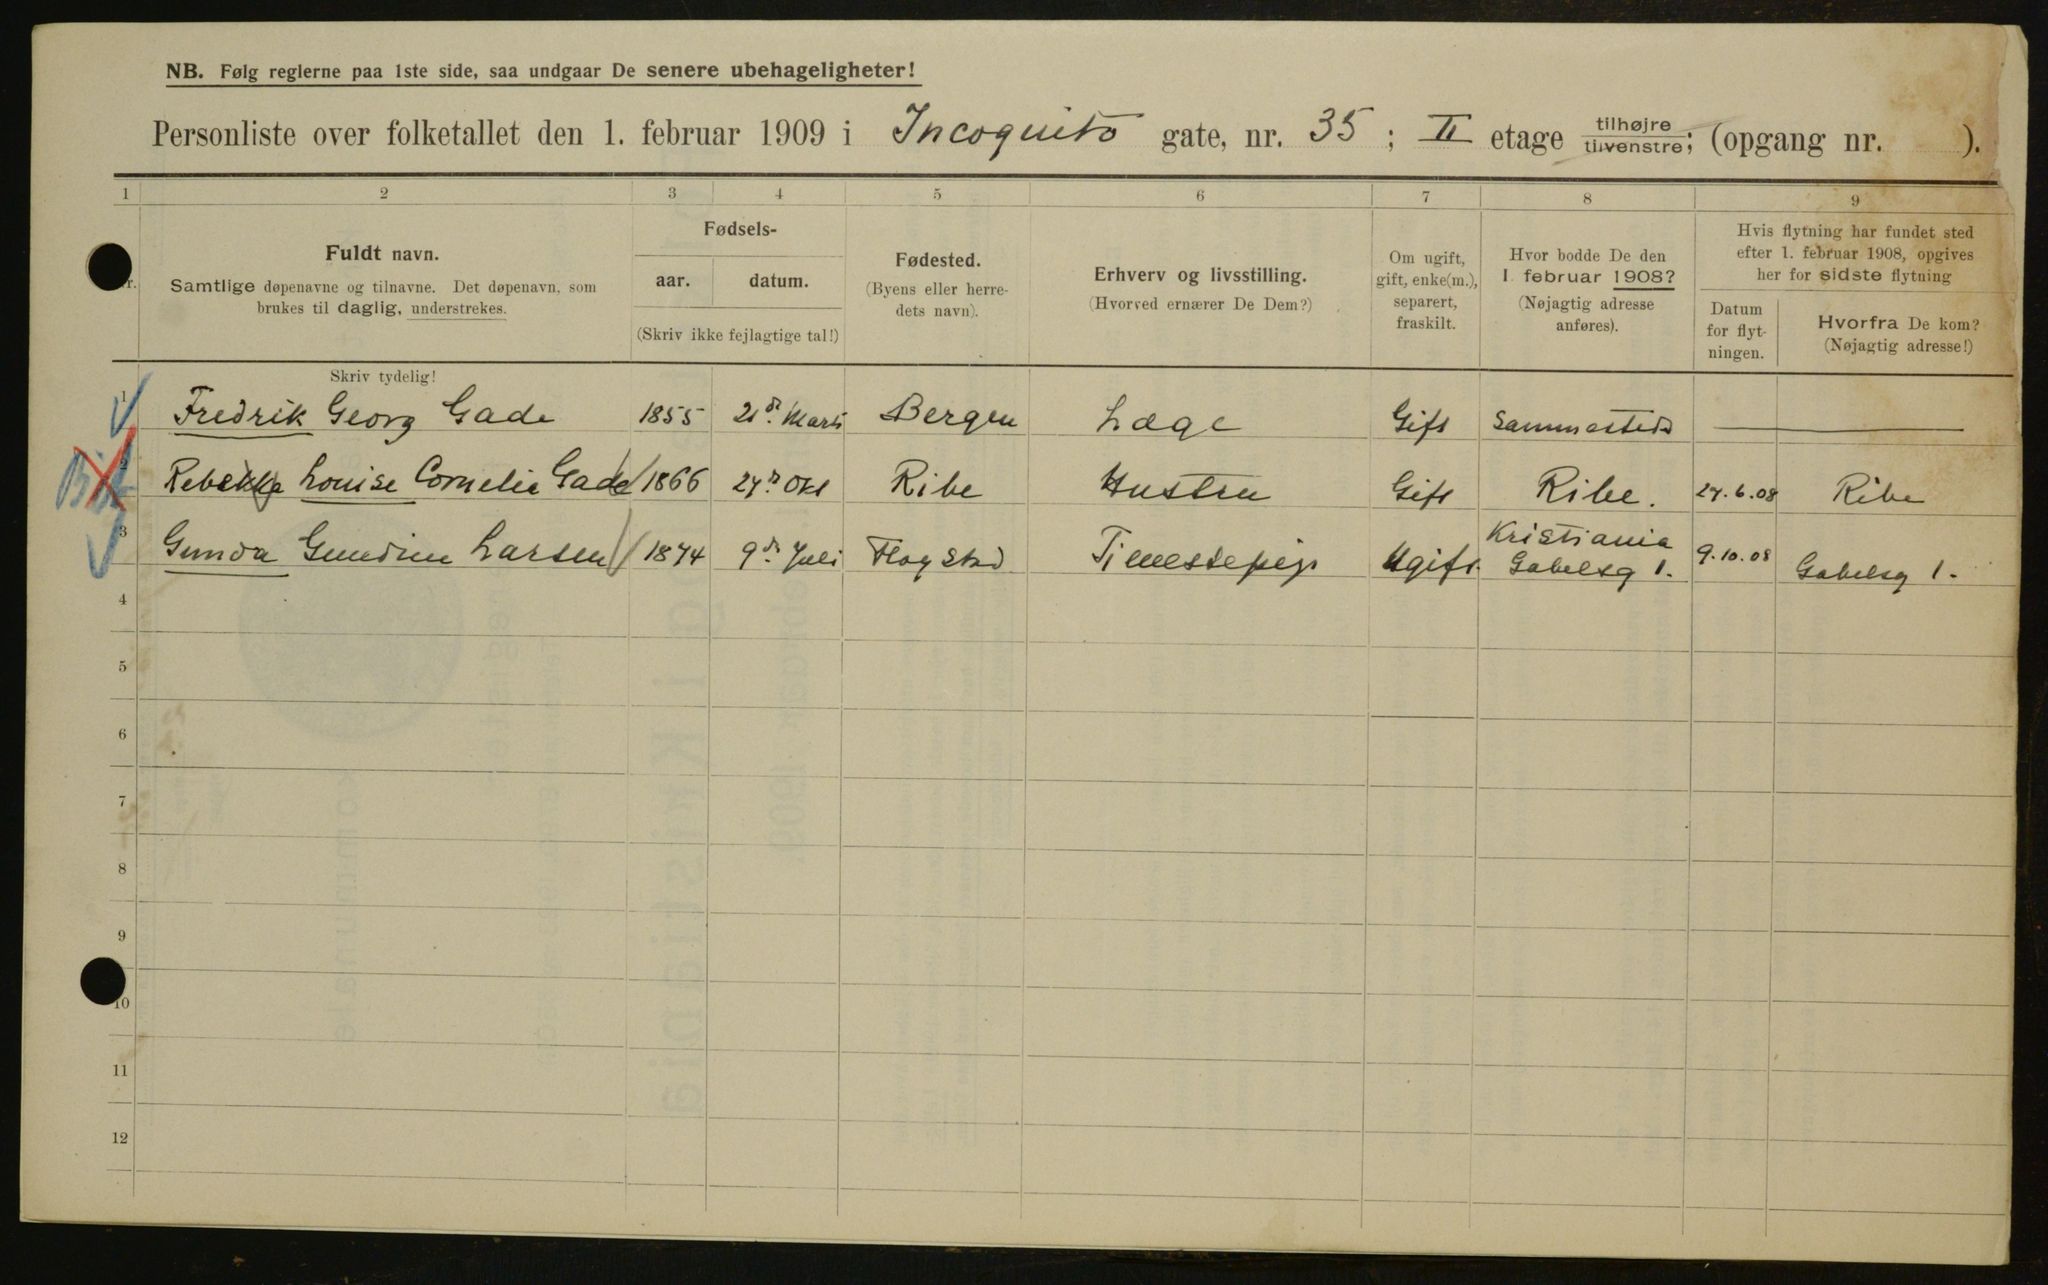 NB. Følg reglerne paa 1ste side, saa undgaar De senere ubehageligheter!
Personliste over folketallet den 1. februar 1909 i Incoquito gate, nr. 35 ; II etage tilhøjre tilvenstre; (opgang nr. ).
1 2 3 4 5 6 7 8 9
Fuldt navn.
Samtlige døpenavne og tilnavne. Det døpenavn, som
brukes til daglig, understrekes.
Skriv tydelig!
Fødsels-
aar. datum.
(Skriv ikke fejlagtige tal!)
Fødested.
(Byens eller herre-
dets navn).
Erhverv og livsstilling.
(Hvorved ernærer De Dem?)
Om ugift,
gift, enke(m.),
separert,
fraskilt.
Hvor bodde De den
1. februar 1908?
(Nøjagtig adresse
anføres).
Hvis flytning har fundet sted
efter 1. februar 1908, opgives
her for sidste flytning
Datum
for flyt-
ningen.
Hvorfra De kom?
(Nøjagtig adresse!)
1 Fredrik Georg Gade 1855 21d. Marts Bergen Læge Gift Sammesteds
2 Rebekka Louise Cornelia Gade 1866 27d. Okt Ribe Hustru Gift Ribe. 27.6.08 Ribe
3 Gunda Gundine Larsen 1874 9d. Juli Tjenestepige Ugift Kristiania
Gabelsg 1. 9.10.08 Gabelsg 1.
4
5
6
7
8
9
10
11
12